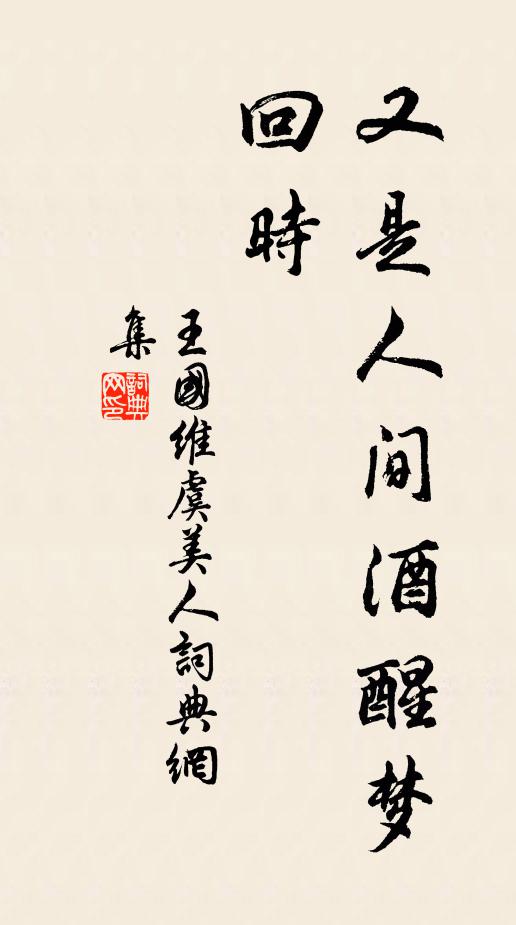 又是人间酒醒梦
回時
王國維虞美人詞典網
集
詞典
网印